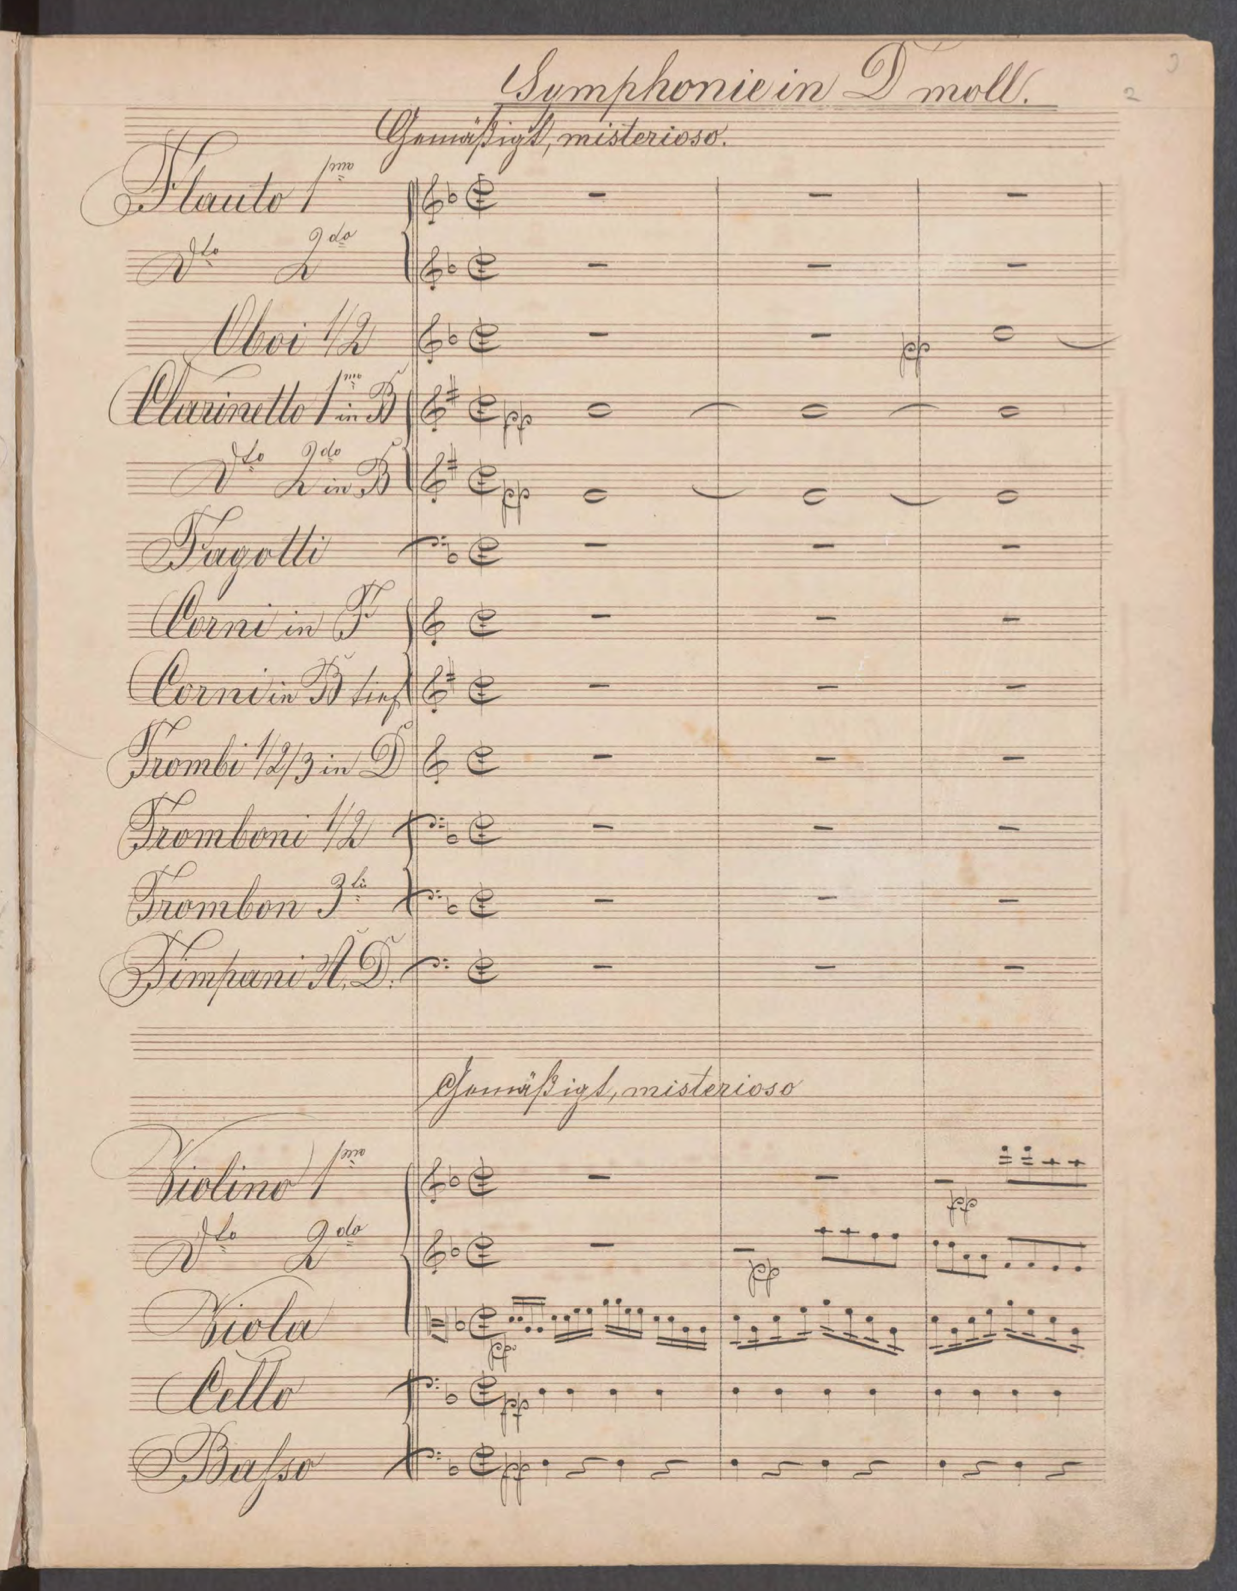 Symphonie in D moll.
2
Gemäßigt, misterioso.
Flauto 1mo
Dto 2do
Oboi 1/2
pp
Clarinetto 1mo in B
pp
Dto 2do in B
pp
Fagotti
Corni in F
Corni in B tief
Trombi 1/2/3 in D
Tromboni 1/2
Trombon 3
Timpani A. D.
Gemäßigt, misterioso
Violino 1mo
pp
Dto 2do
pp
Viola
pp
Cello
pp
Baſso
pp